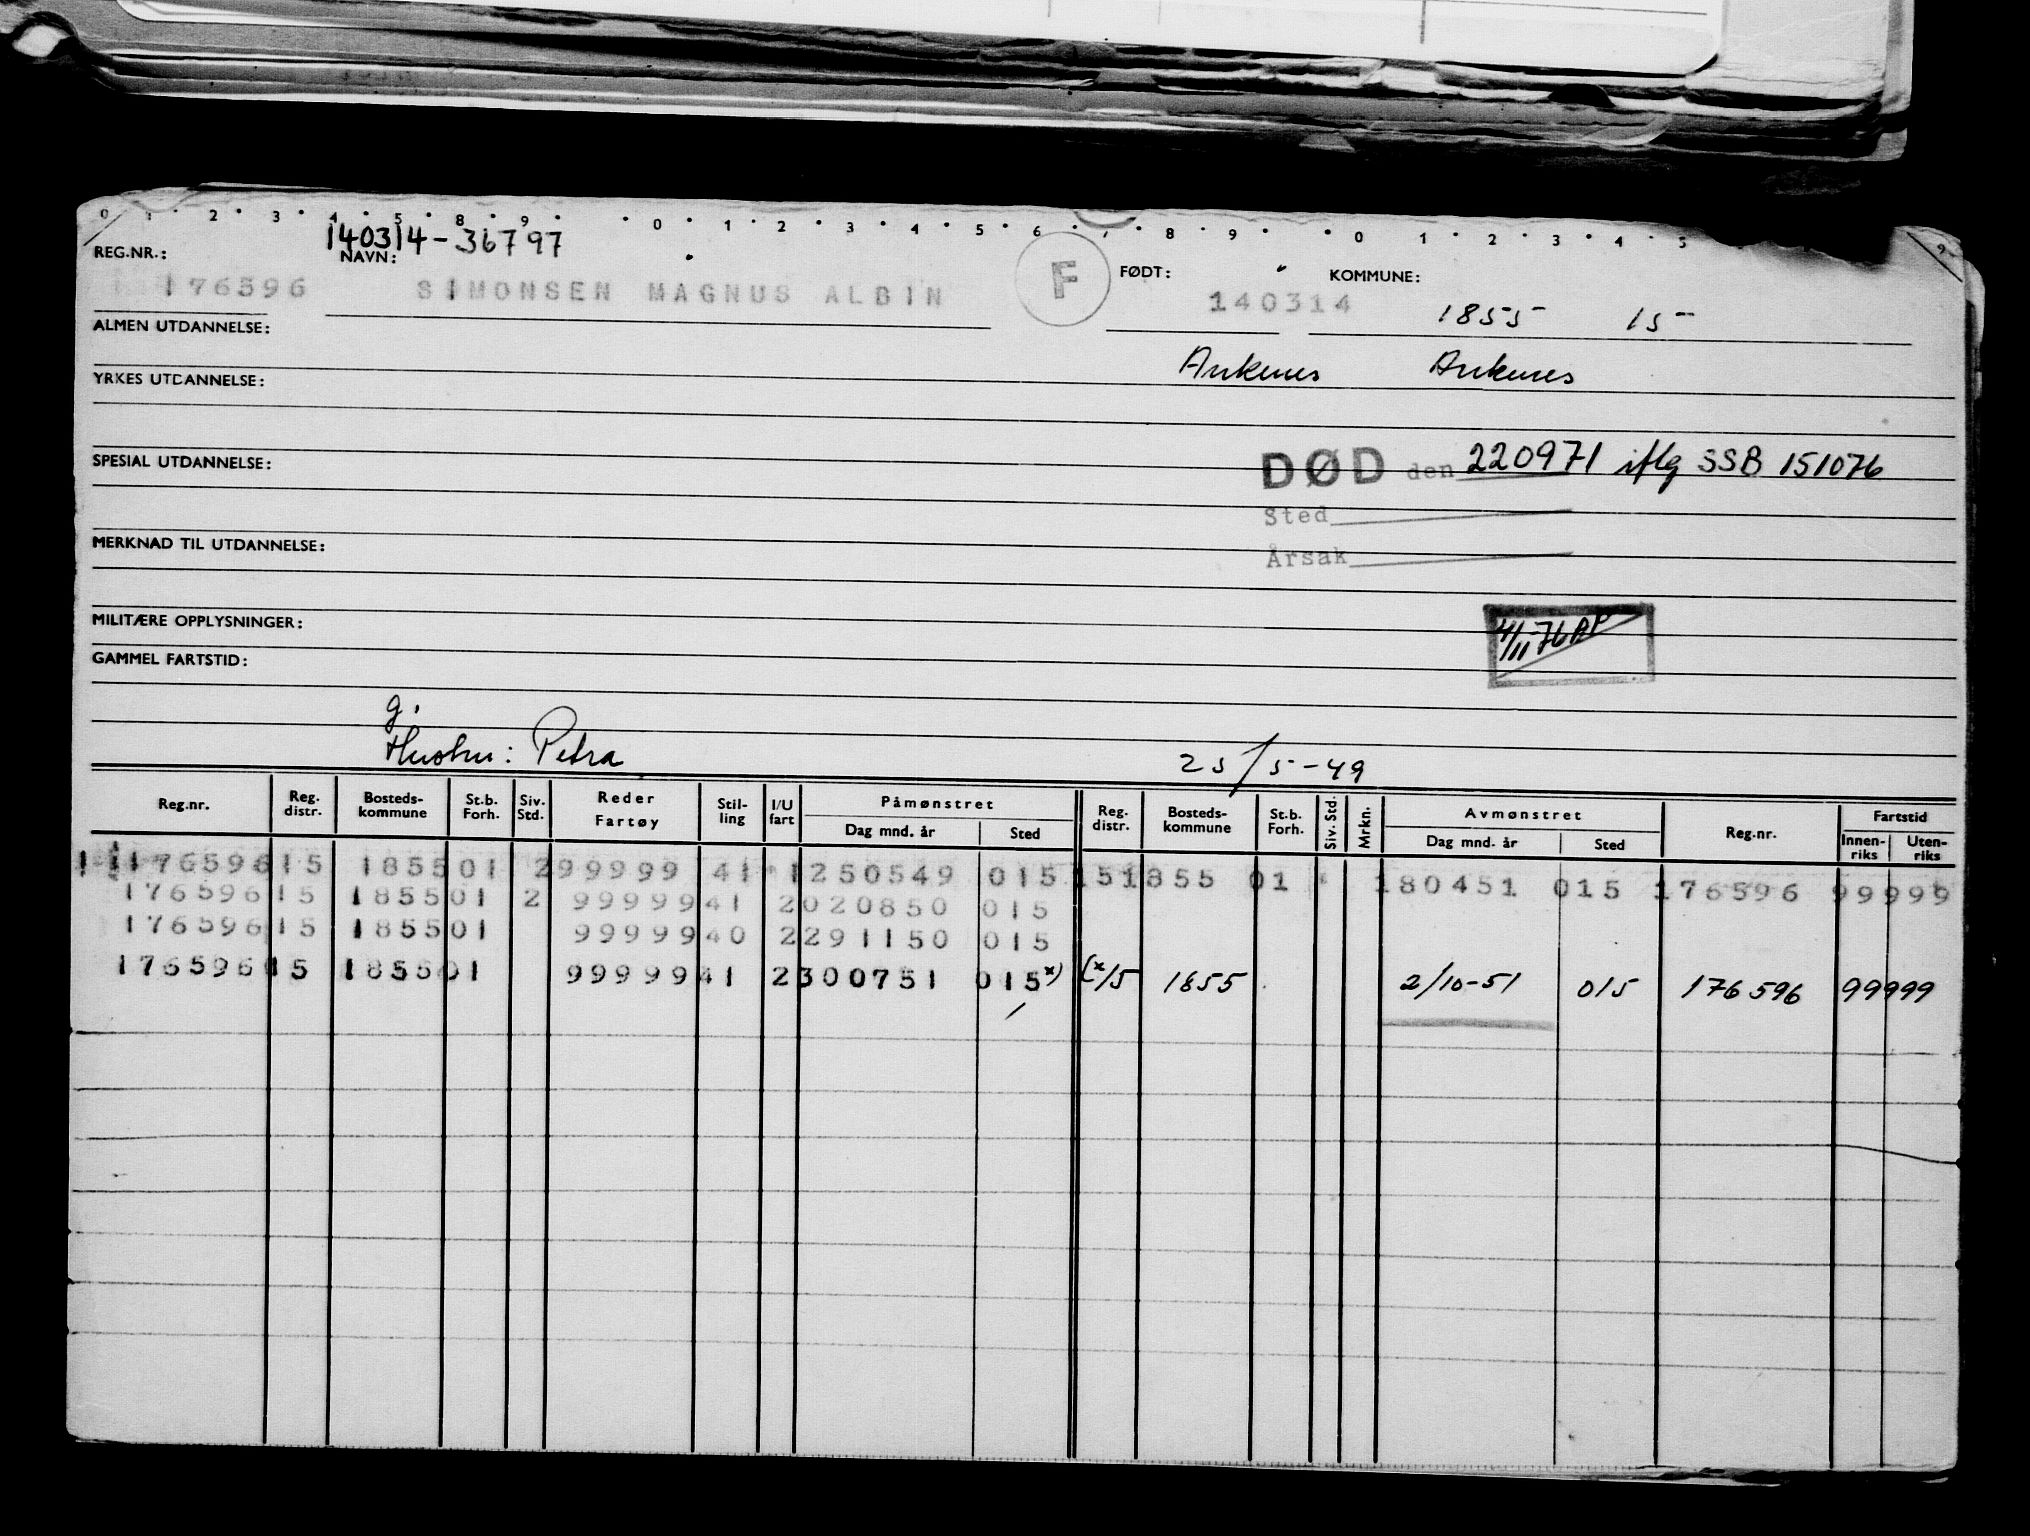 0 1 2 3 4 5 8 9 0 1 2 3 4 5 6 7 8 9 0 1 2 3 4 5 9
140314-36797
REG.NR.: NAVN: FØDT: KOMMUNE:
176596 SIMONSEN MAGNUS ALBIN F 140314 1855 15
ALMEN UTDANNELSE:
Ankenes Ankenes
YRKES UTDANNELSE:
SPESIAL UTDANNELSE:
DØD den 220971 iflg SSB 151076
Sted
Årsak
MERKNAD TIL UTDANNELSE:
MILITÆRE OPPLYSNINGER:
4/11-76
GAMMEL FARTSTID:
g.
Hustru: Petra 25/5-49
Reg.nr. Reg. distr. Bosteds-kommune St.b. Forh. Siv. Std. Reder Fartøy Stil-ling I/U fart Påmønstret Dag mnd. år Sted Reg. distr. Bosteds-kommune St.b. Forh. Siv. Std. Mrkn. Avmønstret Dag mnd. år Sted Reg.nr. Fartstid Innen-riks Uten-riks
176596 15 1855 01 2 99999 41 1 250549 015 15 1855 01 180451 015 176596 99999
176596 15 1855 01 2 99999 41 2 020850 015
176596 15 1855 01 99999 40 2 291150 015
176596 15 1855 01 99999 41 2 300751 015 x) (x/5 1855 2/10-51 015 176596 99999